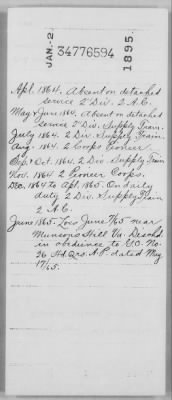 JAN.-2
34776594
1895.
Apl. 1864. Absent on detached
service 2" Div. 2 A.C.
May & June 1864. Absent on detached
service 2" Div. Supply Train.
July 1864. 2 Div. Supply Train.
Aug. 1864. 2 Corps Pioneer
Sep. & Oct. 1864. 2 Div. Supply Train
Nov. 1864. 2 Pioneer Corps.
Dec. 1864 to Apl. 1865. On daily
duty 2 Div. Supply Train
2 A.C.
June 1865. Loss June 7/65 near
Munsons Hill Va. Dischd.
in obedience to G.O. No.
26 Hd. Qrs. A.P. dated May
17/65.